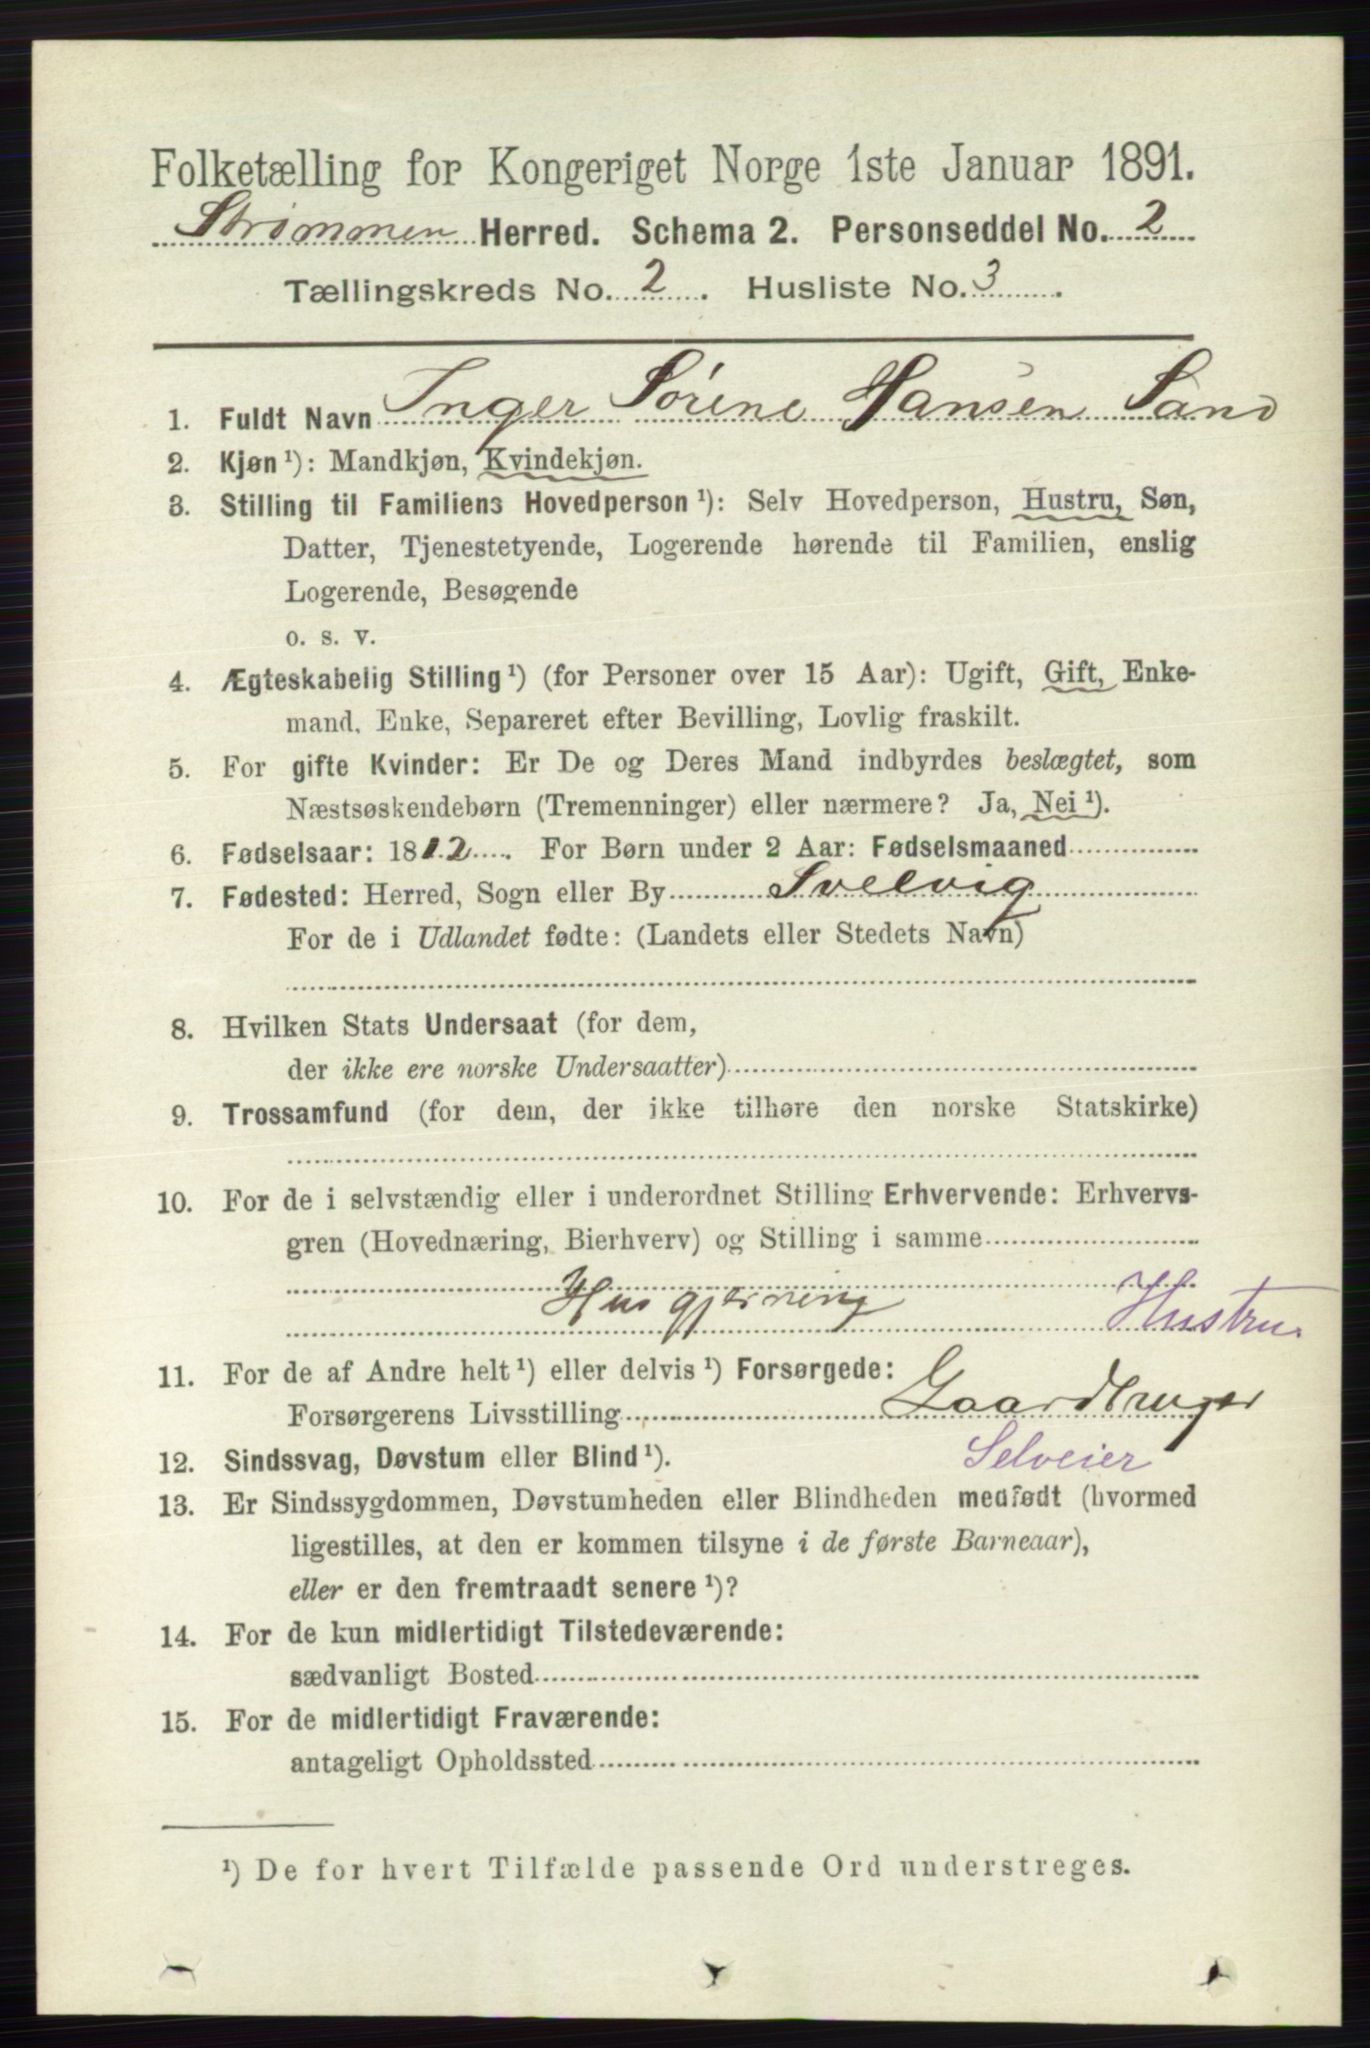 Folketælling for Kongeriget Norge 1ste Januar 1891.
Strømmen Herred. Schema 2. Personseddel No. 2
Tællingskreds No. 2. Husliste No. 3.
1. Fuldt Navn Inger Sørine Hansen Sand
2. Kjøn¹): Mandkjøn, Kvindekjøn.
3. Stilling til Familiens Hovedperson¹): Selv Hovedperson, Hustru, Søn,
Datter, Tjenestetyende, Logerende hørende til Familien, enslig
Logerende, Besøgende
o. s. v.
4. Ægteskabelig Stilling¹) (for Personer over 15 Aar): Ugift, Gift, Enke-
mand, Enke, Separeret efter Bevilling, Lovlig fraskilt.
5. For gifte Kvinder: Er De og Deres Mand indbyrdes beslægtet, som
Næstsøskendebørn (Tremenninger) eller nærmere? Ja, Nei¹).
6. Fødselsaar: 1812. For Børn under 2 Aar: Fødselsmaaned
7. Fødested: Herred, Sogn eller By Svelvig
For de i Udlandet fødte: (Landets eller Stedets Navn)
8. Hvilken Stats Undersaat (for dem,
der ikke ere norske Undersaatter)
9. Trossamfund (for dem, der ikke tilhøre den norske Statskirke)
10. For de i selvstændig eller i underordnet Stilling Erhvervende: Erhvervs-
gren (Hovednæring, Bierhverv) og Stilling i samme
Husgjerning Hustru
11. For de af Andre helt¹) eller delvis¹) Forsørgede:
Forsørgerens Livsstilling Gaardbruger
12. Sindssvag, Døvstum eller Blind¹). Selveier
13. Er Sindssygdommen, Døvstumheden eller Blindheden medfødt (hvormed
ligestilles, at den er kommen tilsyne i de første Barneaar),
eller er den fremtraadt senere¹)?
14. For de kun midlertidigt Tilstedeværende:
sædvanligt Bosted
15. For de midlertidigt Fraværende:
antageligt Opholdssted
¹) De for hvert Tilfælde passende Ord understreges.